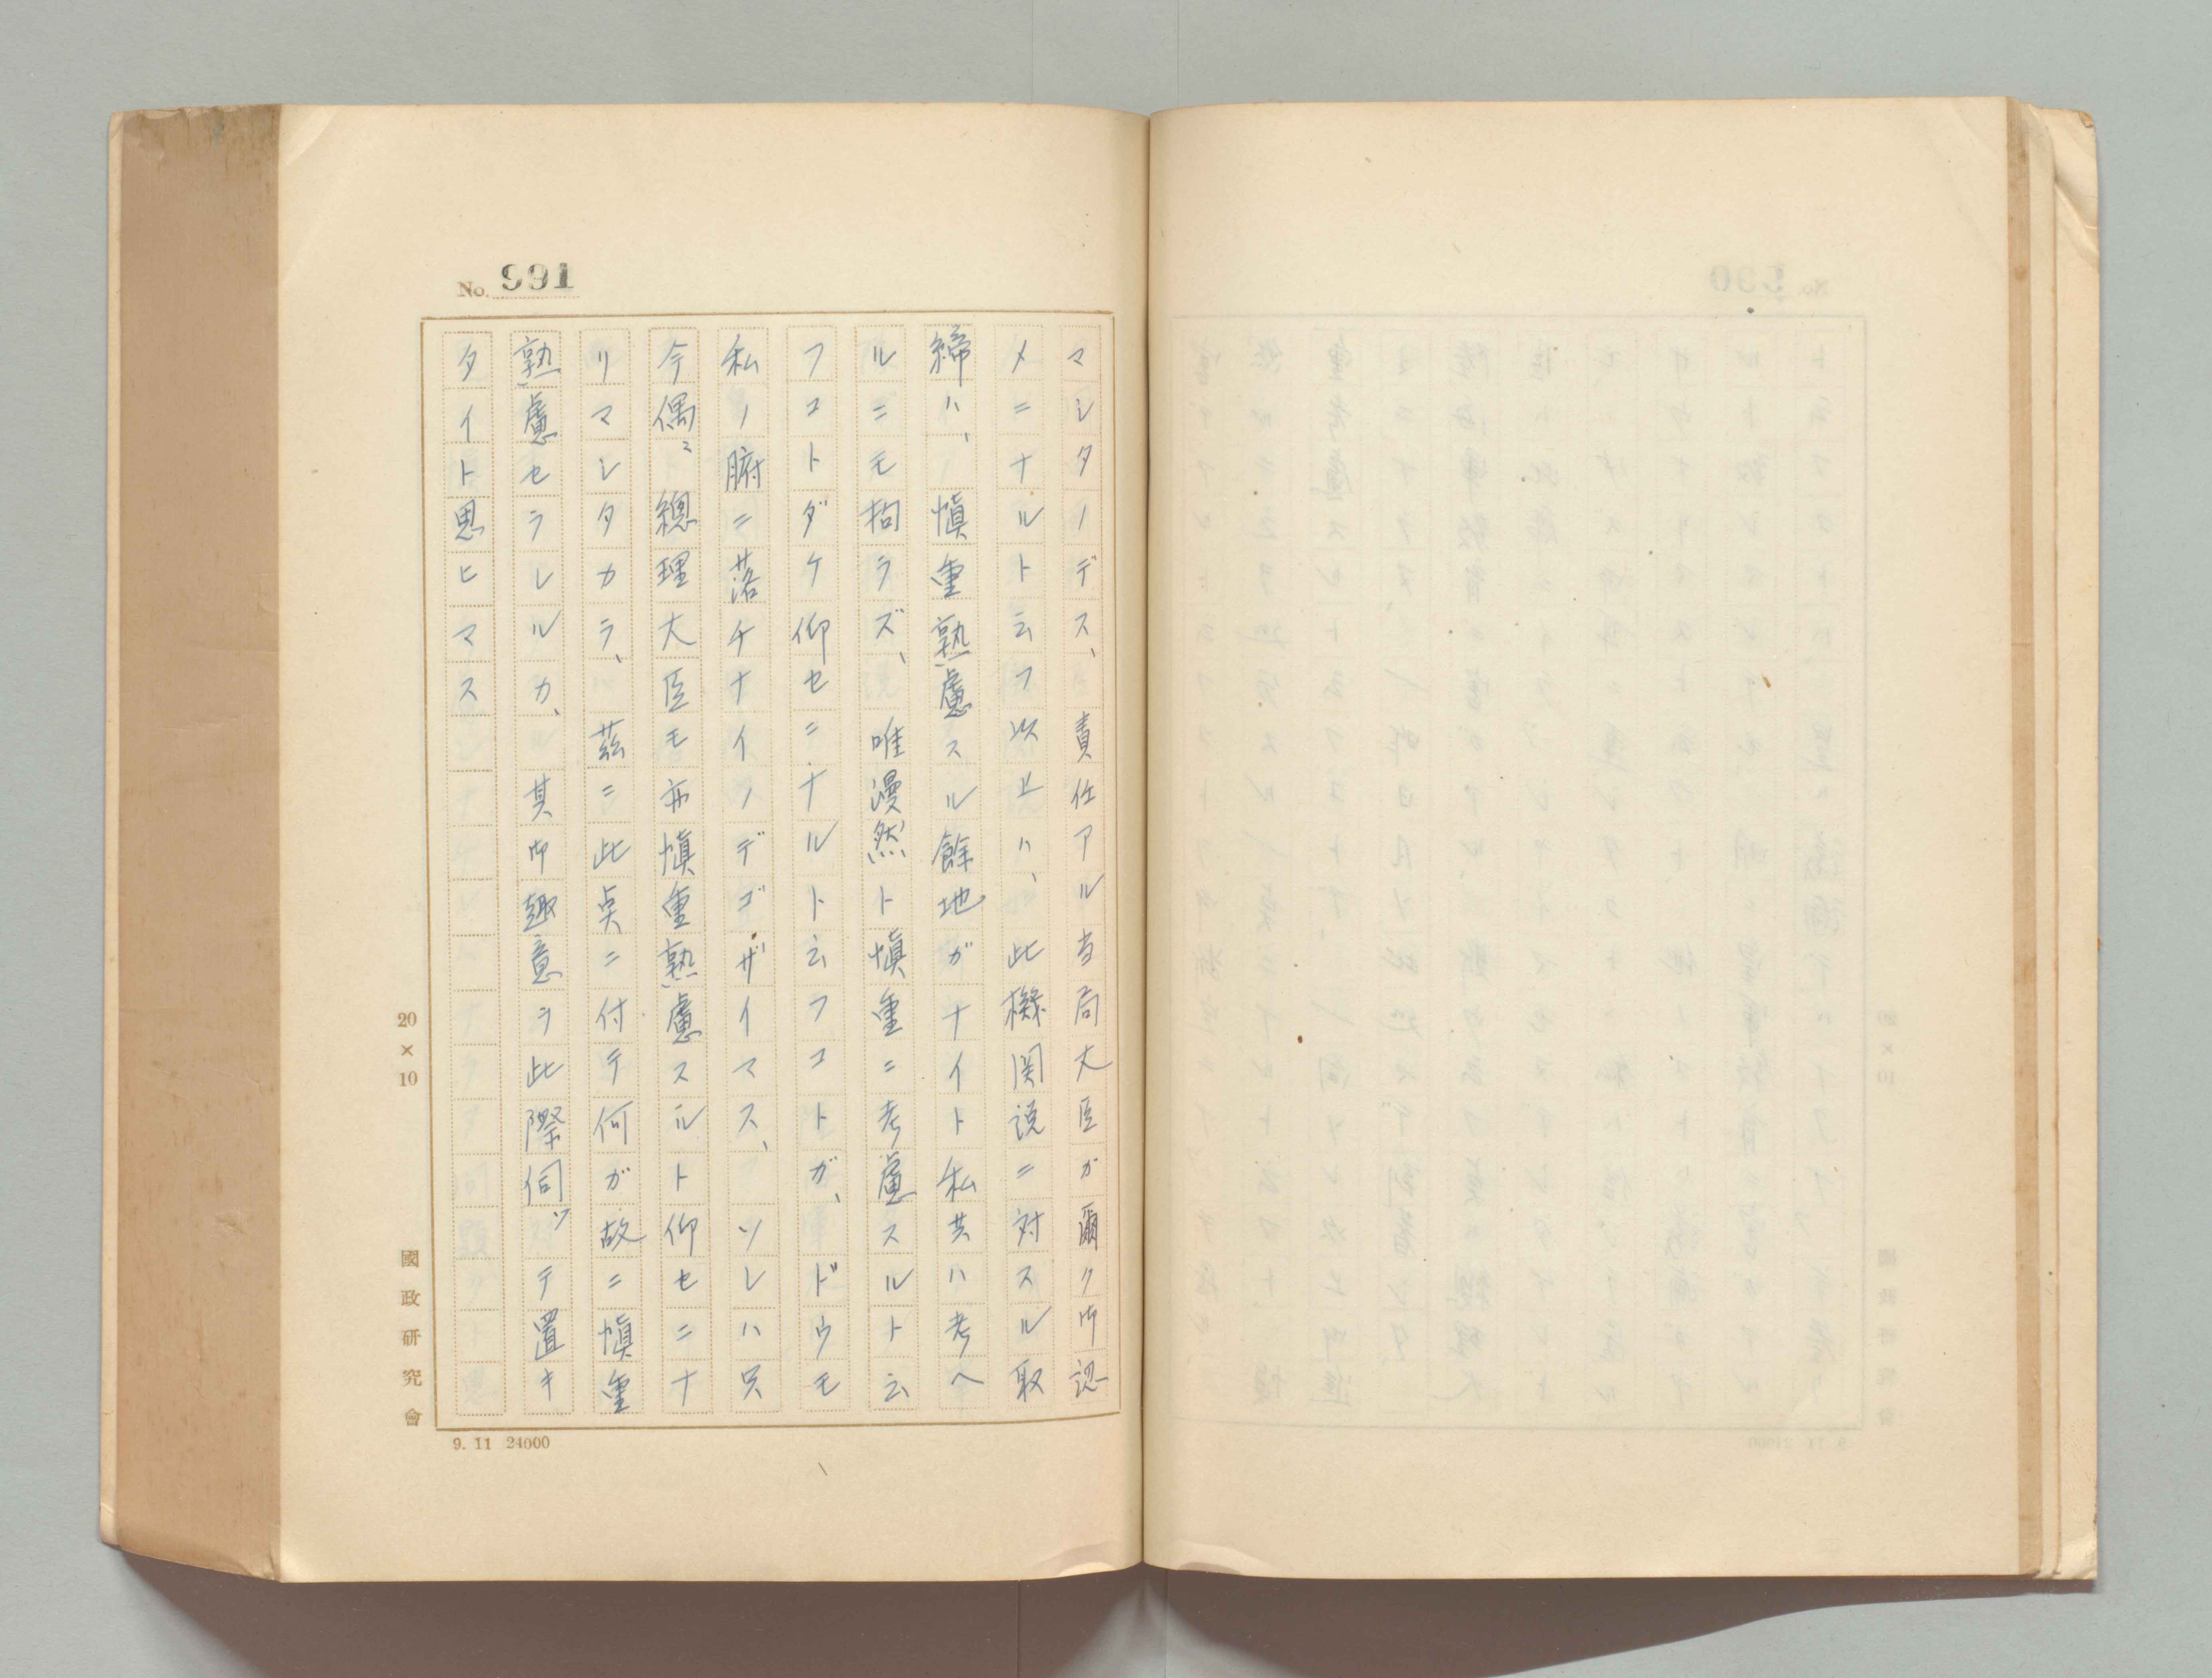 No. 991
マシタノデス、責任アル当局大臣ガ爾ク御認
メニナルト云フ以上ハ、此機関説ニ対スル取
締ハ、慎重熟慮スル餘地ガナイト私共ハ考ヘ
ルニモ拘ラズ、唯漫然ト慎重ニ考慮スルト云
フコトダケ仰セニナルト云フコトガ、ドウモ
私ノ腑ニ落チナイノデゴザイマス、ソレハ只
今偶〻總理大臣モ亦慎重熟慮スルト仰セニナ
リマシタカラ、茲ニ此点ニ付テ何ガ故ニ慎重
熟慮セラレルカ、其御趣意ヲ此際伺ツテ置キ
タイト思ヒマス
20×10
國政研究會
9. 11 24000